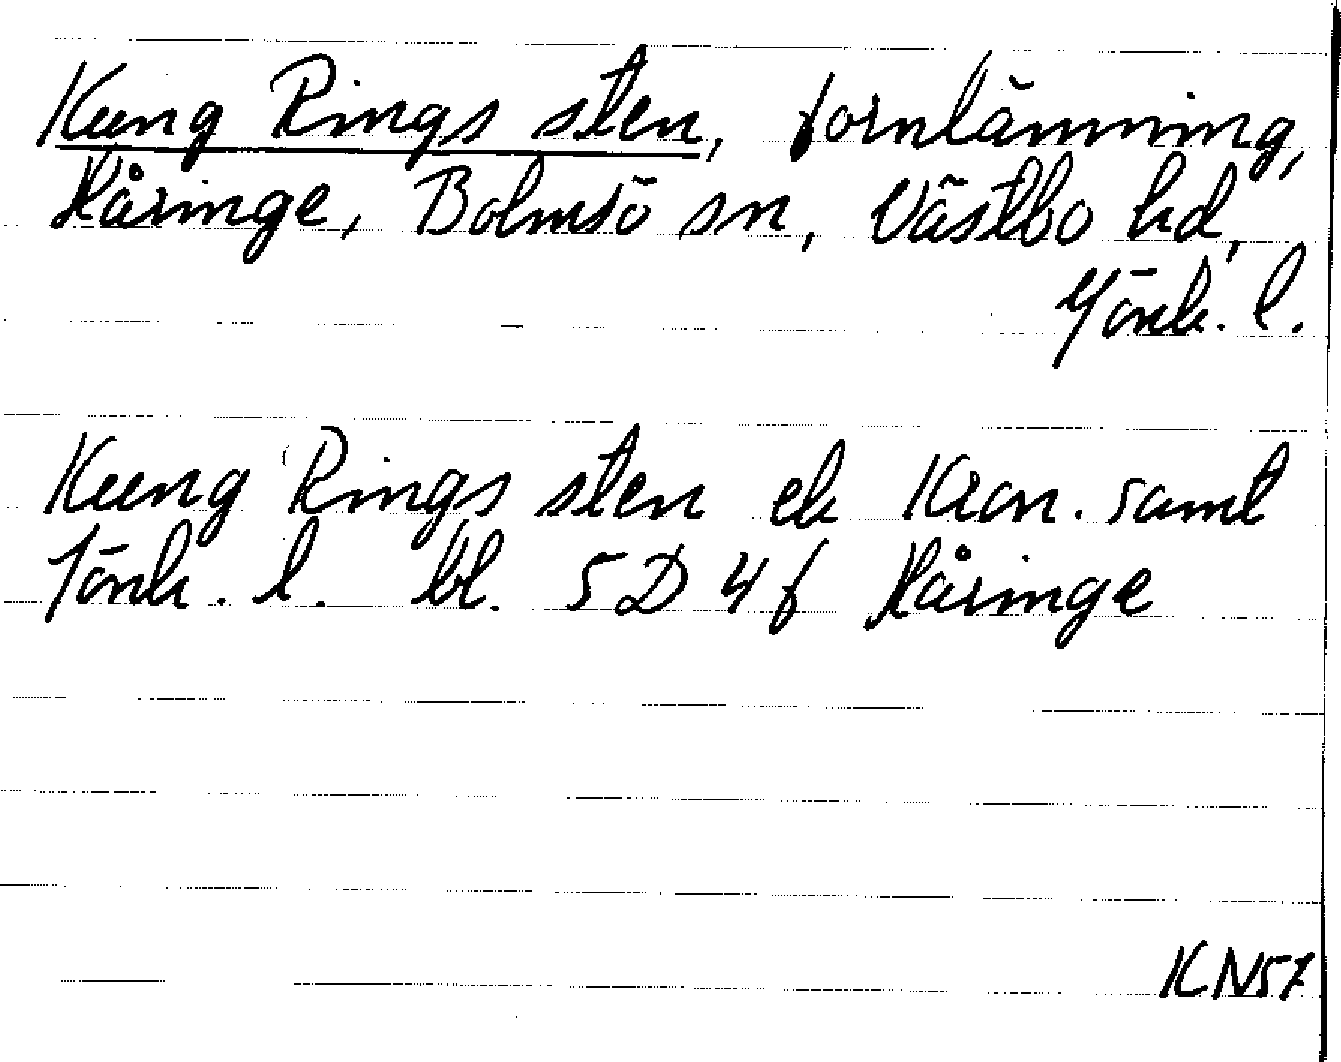 Kung Rings sten, fornlämning,
Håringe, Bolmsö sn, Västbo hd,
Jönk. l.
Kung Rings sten ek Kron. saml
Jönk. l. bl. 5D 4f Håringe
KN57